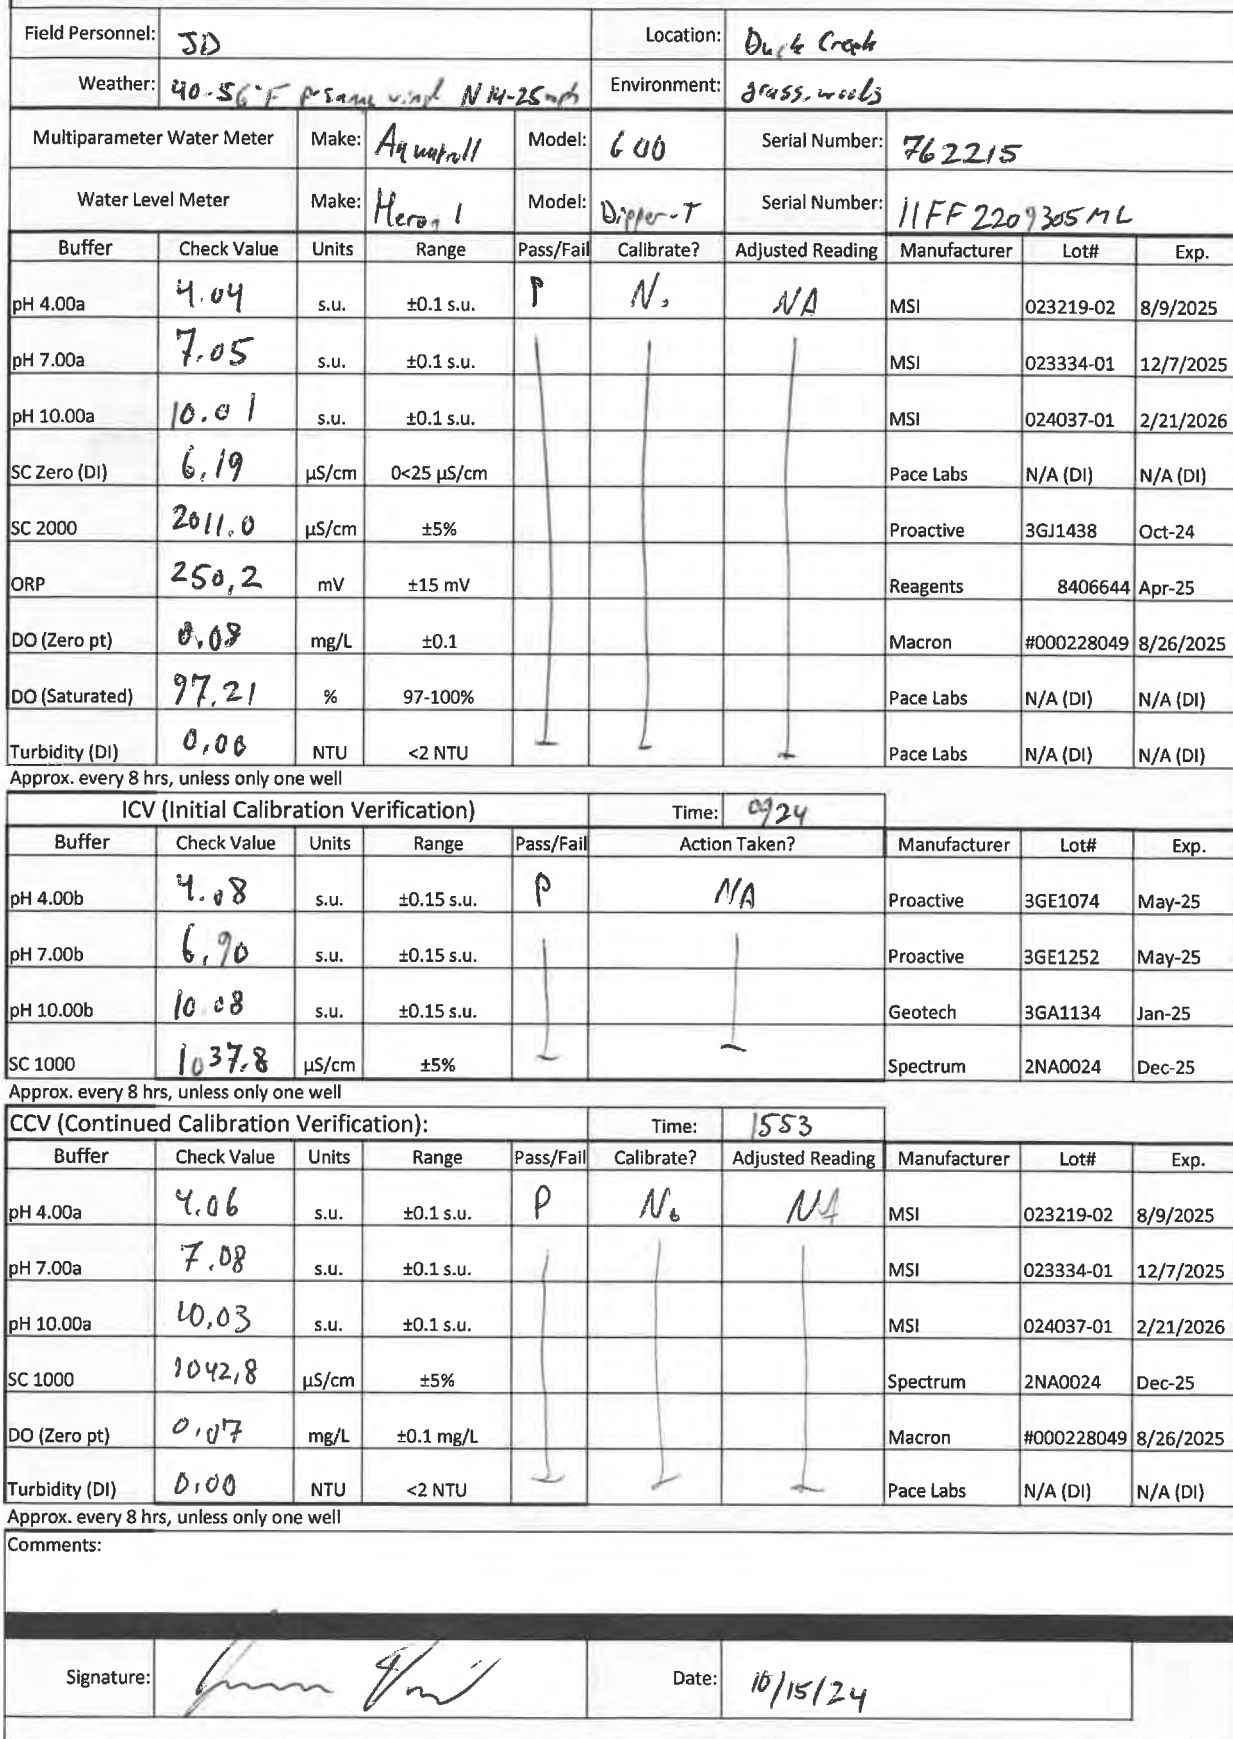 Field Personnel: JD Location: Duck Creek
Weather: 40-56°F p-sunny wind N 14-25mph Environment: grass, weeds
Multiparameter Water Meter Make: Aquatroll Model: 600 Serial Number: 762215
Water Level Meter Make: Heron 1 Model: Dipper-T Serial Number: 11FF2209305ML
Buffer Check Value Units Range Pass/Fail Calibrate? Adjusted Reading Manufacturer Lot# Exp.
pH 4.00a 4.04 s.u. ±0.1 s.u. P No NA MSI 023219-02 8/9/2025
pH 7.00a 7.05 s.u. ±0.1 s.u. MSI 023334-01 12/7/2025
pH 10.00a 10.01 s.u. ±0.1 s.u. MSI 024037-01 2/21/2026
SC Zero (DI) 6.19 µS/cm 0<25 µS/cm Pace Labs N/A (DI) N/A (DI)
SC 2000 2011.0 µS/cm ±5% Proactive 3GJ1438 Oct-24
ORP 250.2 mV ±15 mV Reagents 8406644 Apr-25
DO (Zero pt) 0.08 mg/L ±0.1 Macron #000228049 8/26/2025
DO (Saturated) 97.21 % 97-100% Pace Labs N/A (DI) N/A (DI)
Turbidity (DI) 0.00 NTU <2 NTU Pace Labs N/A (DI) N/A (DI)
Approx. every 8 hrs, unless only one well
ICV (Initial Calibration Verification) Time: 0924
Buffer Check Value Units Range Pass/Fail Action Taken? Manufacturer Lot# Exp.
pH 4.00b 4.08 s.u. ±0.15 s.u. P NA Proactive 3GE1074 May-25
pH 7.00b 6.90 s.u. ±0.15 s.u. Proactive 3GE1252 May-25
pH 10.00b 10.08 s.u. ±0.15 s.u. Geotech 3GA1134 Jan-25
SC 1000 1037.8 µS/cm ±5% Spectrum 2NA0024 Dec-25
Approx. every 8 hrs, unless only one well
CCV (Continued Calibration Verification): Time: 1553
Buffer Check Value Units Range Pass/Fail Calibrate? Adjusted Reading Manufacturer Lot# Exp.
pH 4.00a 4.06 s.u. ±0.1 s.u. P No NA MSI 023219-02 8/9/2025
pH 7.00a 7.08 s.u. ±0.1 s.u. MSI 023334-01 12/7/2025
pH 10.00a 10.03 s.u. ±0.1 s.u. MSI 024037-01 2/21/2026
SC 1000 1042.8 µS/cm ±5% Spectrum 2NA0024 Dec-25
DO (Zero pt) 0.07 mg/L ±0.1 mg/L Macron #000228049 8/26/2025
Turbidity (DI) 0.00 NTU <2 NTU Pace Labs N/A (DI) N/A (DI)
Approx. every 8 hrs, unless only one well
Comments:
Signature: Date: 10/15/24